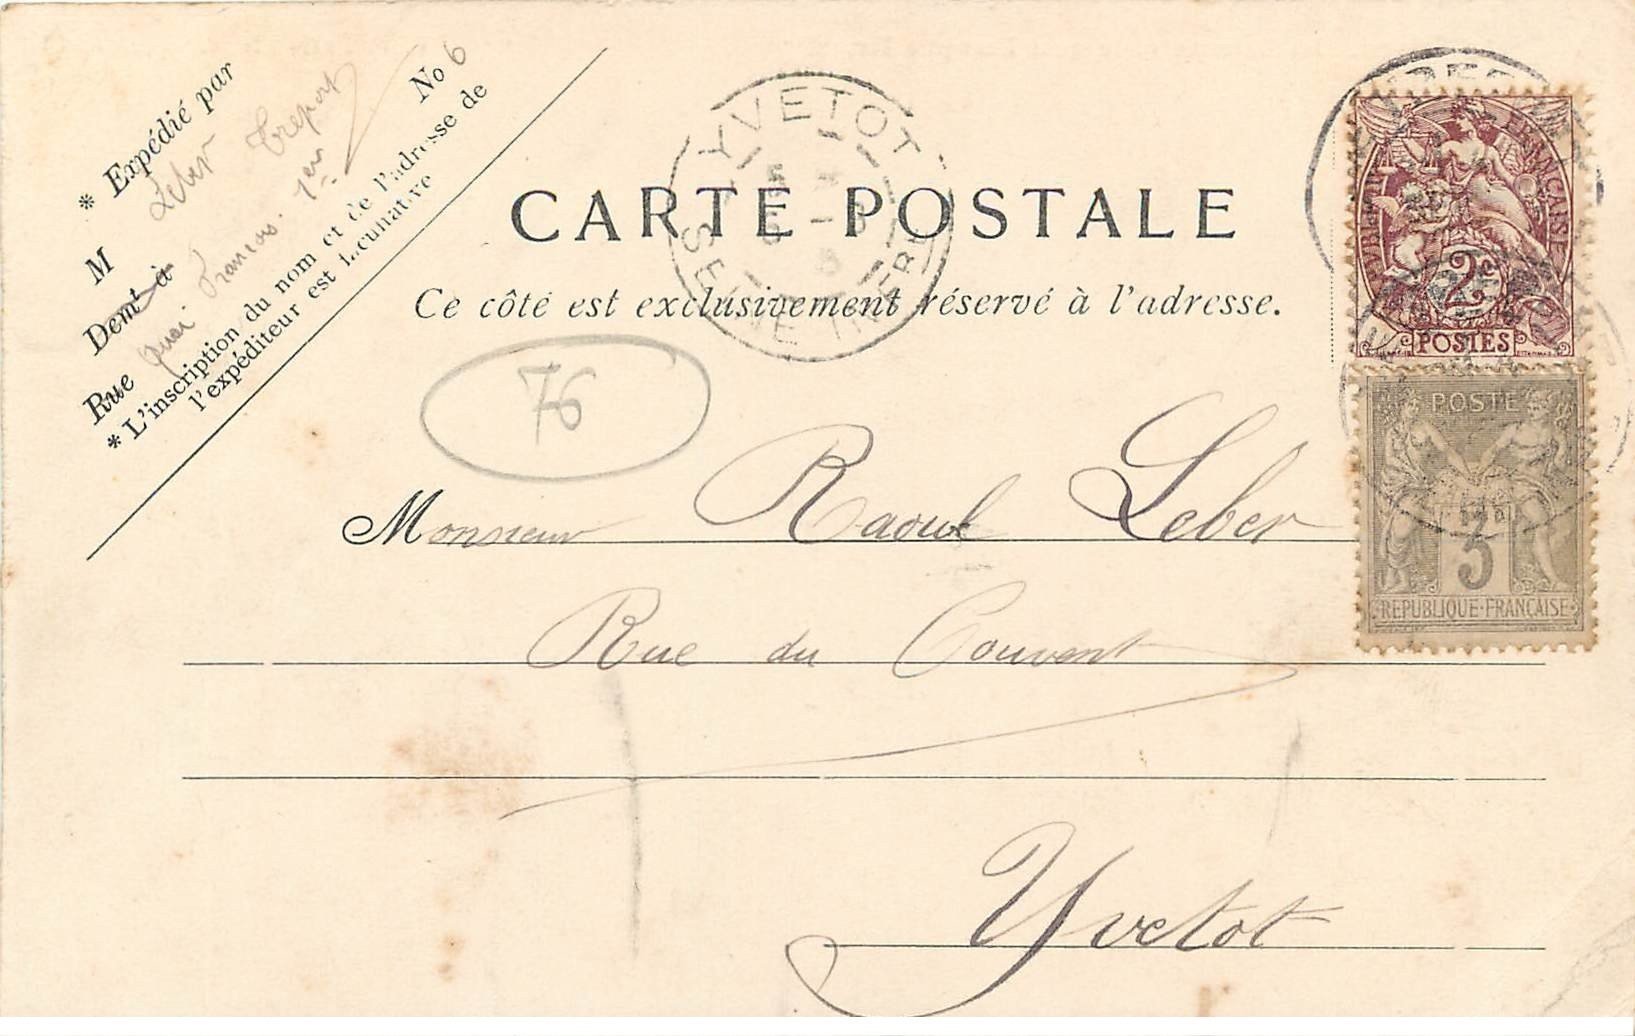 * Expédié par
M Leber Treport
Demt à
Rue Quai Francois 1er No 6
* L'inscription du nom et de l'adresse de
l'expéditeur est facultative
YVETOT
SEINE INFRE
CARTE POSTALE
Ce côté est exclusivement réservé à l'adresse.
REPUBLIQUE FRANÇAISE
2c
POSTES
POSTE
3
REPUBLIQUE·FRANÇAISE
76
Monsieur Raoul Leber
Rue du Couvent
Yvetot